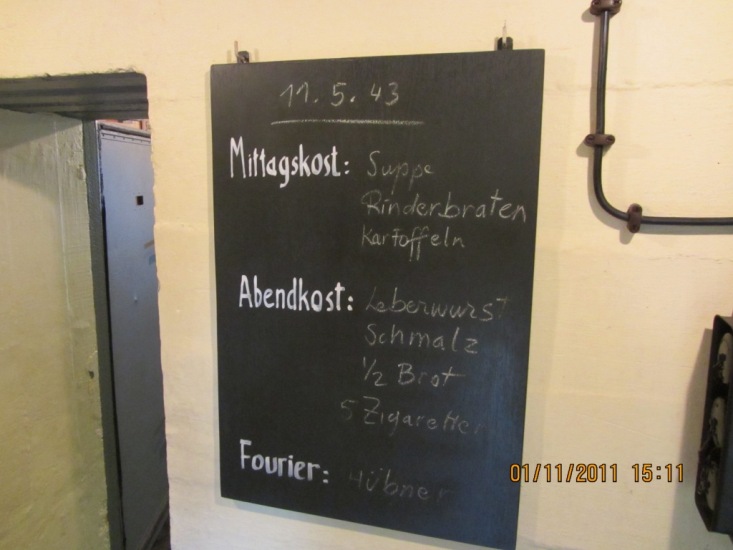 11. 5. 43
Mittagskost: Suppe
Rinderbraten
Kartoffeln
Abendkost: Leberwurst
Schmalz
1/2 Brot
5 Zigaretten
Fourier: Hübner
01/11/2011 15:11